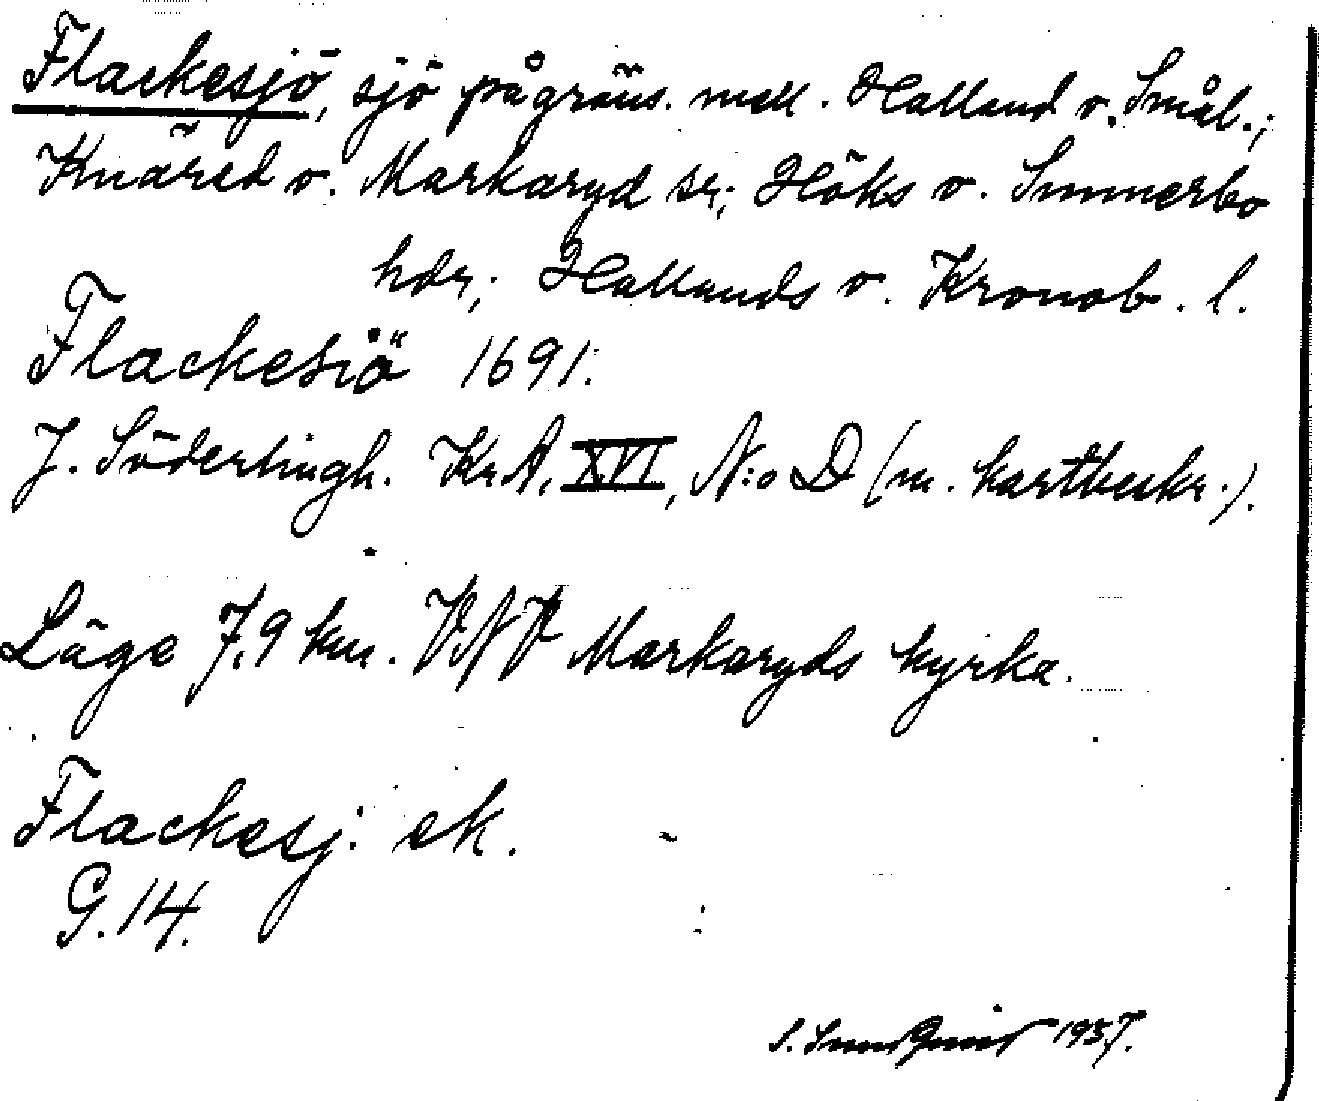 Flackesjö, sjö på gräns. mell. Halland o. Smål.;
Knäred o. Markaryd sr; Höks o. Sunnerbo
hdr; Hallands o. Kronob. l.
Flackesiö 1691.
J. Söderlingh. KrA, XVI, N:o D (m. kartbeskr.).
Läge 7,9 km. VNV Markaryds kyrka.
Flackesj. ek.
G. 14.
S. 1937.